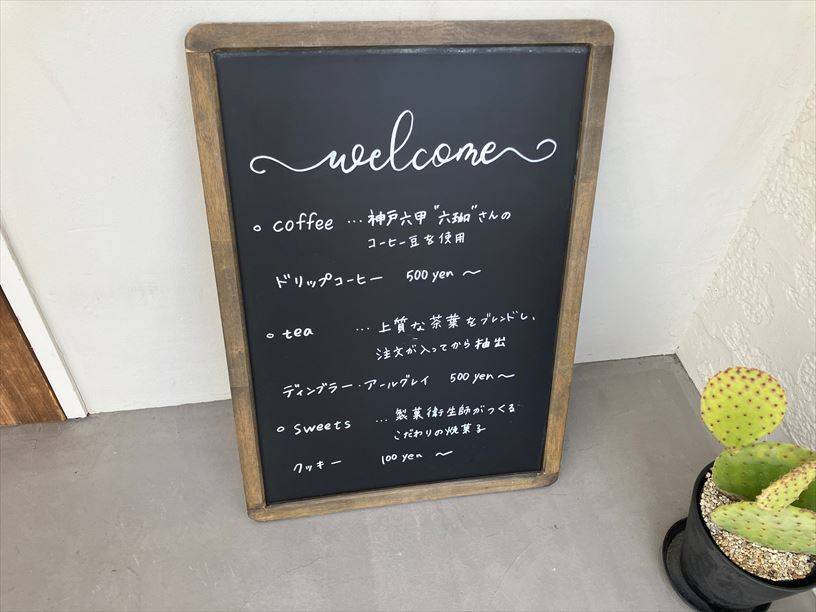 welcome
○ coffee … 神戸六甲"六珈"さんの
コーヒー豆を使用
ドリップコーヒー 500 yen 〜
○ tea … 上質な茶葉をブレンドし、
注文が入ってから抽出
ディングラー・アールグレイ 500 yen 〜
○ sweets … 製菓衛生師がつくる
こだわりの焼菓子
クッキー 100 yen 〜